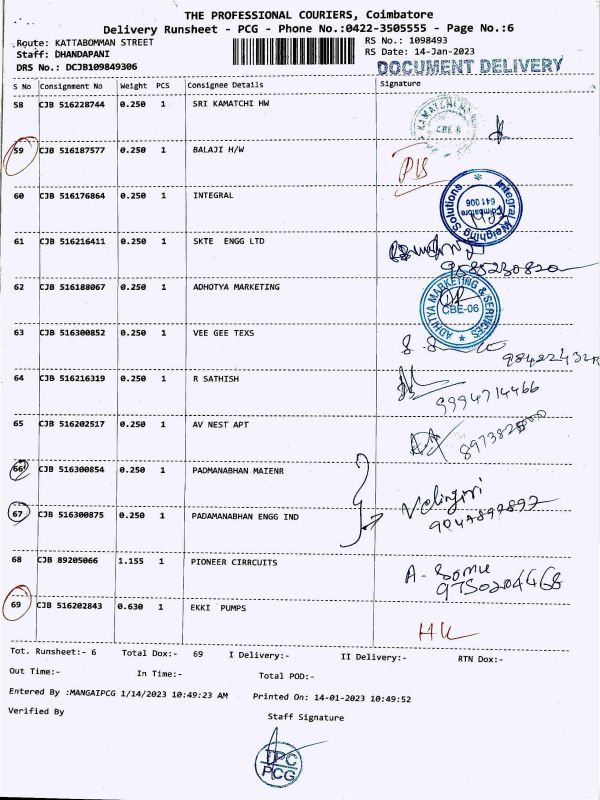 THE PROFESSIONAL COURIERS, Coimbatore
Delivery Runsheet - PCG - Phone No.:0422-3505555 - Page No.:6
Route: KATTABOMMAN STREET
RS No.: 1098493
Staff: DHANDAPANI
RS Date: 14-Jan-2023
DRS No.: DCJB109849306
DOCUMENT DELIVERY
S No Consignment No Weight PCS Consignee Details Signature
58 CJB 516228744 0.250 1 SRI KAMATCHI HW
CBE 6
59 CJB 516187577 0.250 1 BALAJI H/W
60 CJB 516176864 0.250 1 INTEGRAL
Integral Weighing Solutions
Coimbatore
641 006
61 CJB 516216411 0.250 1 SKTE ENGG LTD
9585230820
62 CJB 516188067 0.250 1 ADHOTYA MARKETING
ADHITYA MARKETING & SERVICES
CBE-06
63 CJB 516300852 0.250 1 VEE GEE TEXS
64 CJB 516216319 0.250 1 R SATHISH
9994714466
65 CJB 516202517 0.250 1 AV NEST APT
66 CJB 516300854 0.250 1 PADMANABHAN MAIENR
67 CJB 516300875 0.250 1 PADAMANABHAN ENGG IND
68 CJB 89205066 1.155 1 PIONEER CIRRCUITS
A. Somu
9750204468
69 CJB 516202843 0.630 1 EKKI PUMPS
Tot. Runsheet:- 6 Total Dox:- 69 I Delivery:- II Delivery:- RTN Dox:-
Out Time:- In Time:- Total POD:-
Entered By :MANGAIPCG 1/14/2023 10:49:23 AM Printed On: 14-01-2023 10:49:52
Verified By
Staff Signature
TPC
PCG